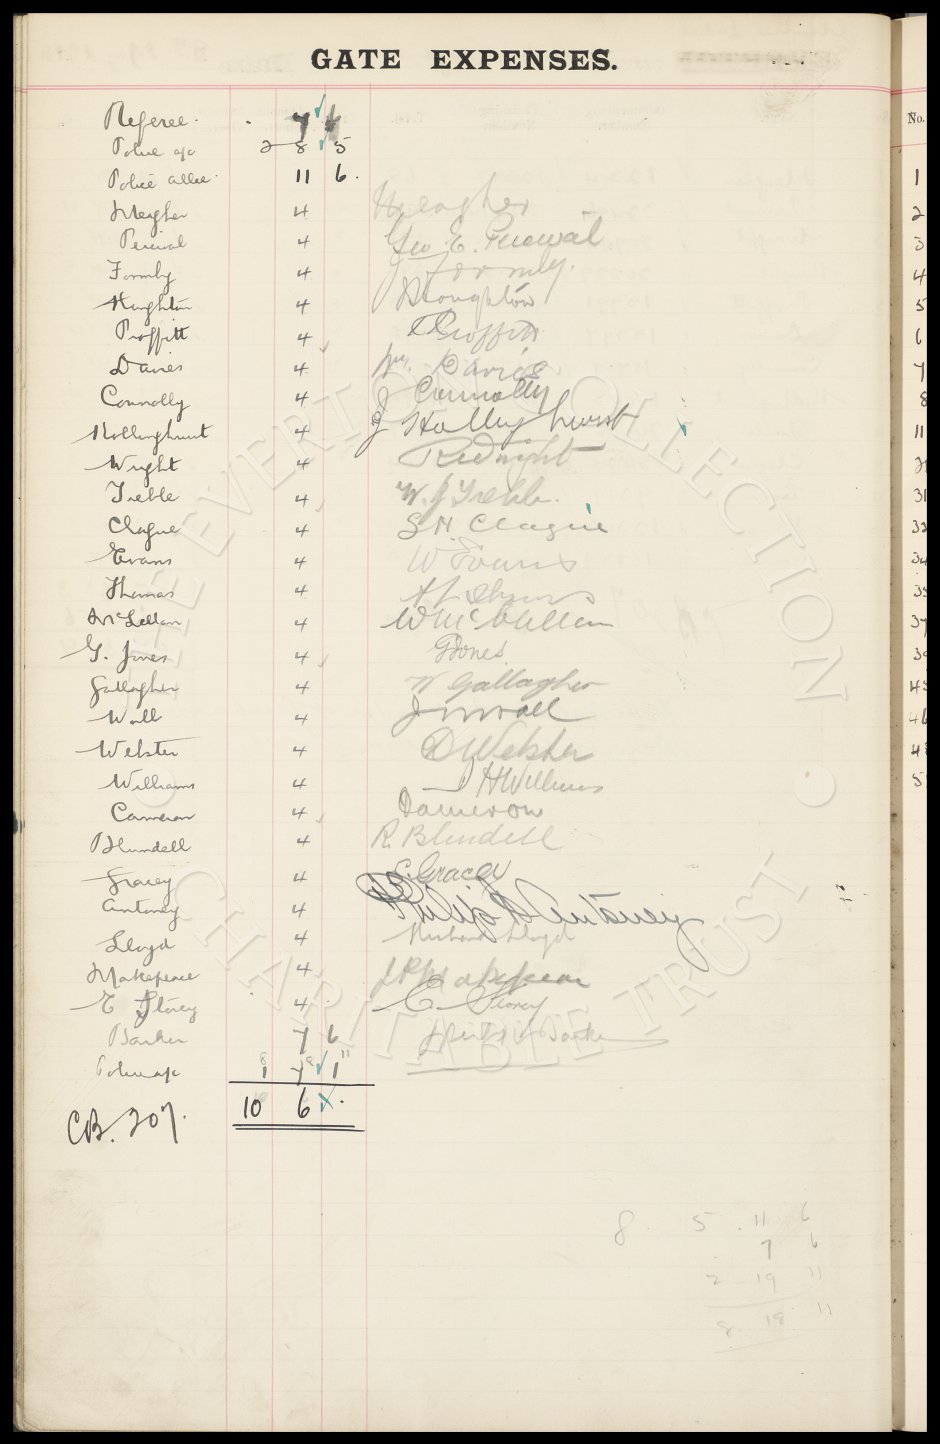 GATE EXPENSES.
Referee. 7 6
Police a/c 2 8 5
Police allce. 11 6.
Meagher 4 Meagher
Percival 4 Geo. E. Percival
Formby 4 J Formby.
Houghton 4 Houghton
Proffitt 4 Proffitt
Davies 4 Wm. Davies
Connolly 4 J Connolly
Hollinghurst 4 J Hollyhurst
Wright 4 R Wright
Treble 4 W. J Treble.
Clague 4 S H Clague
Evans 4 W Evans
Thomas 4
McLellan 4 W McClellan
G. Jones 4 G Jones
Gallagher 4 W Gallagher
Wall 4 J Wall
Webster 4 D Webster
Williams 4 H Williams
Cameron 4 D Cameron
Blundell 4 R. Blundell
Gracey 4 C. Gracey
Antoney 4 Philip H Antoney
Lloyd 4 Richard Lloyd
Makepeace 4 J R Makepeace
E Storey 4 E Storey
Barker 7 6 Barker
8 8 11
Police a/c 1 7 1
10 6 .
CB. 207.
8. 5. 11 6
7 6
2 19 11
8. 18 11
THE EVERTON COLLECTION CHARITABLE TRUST
No.
1
2
3
4
5
6
7
8
11